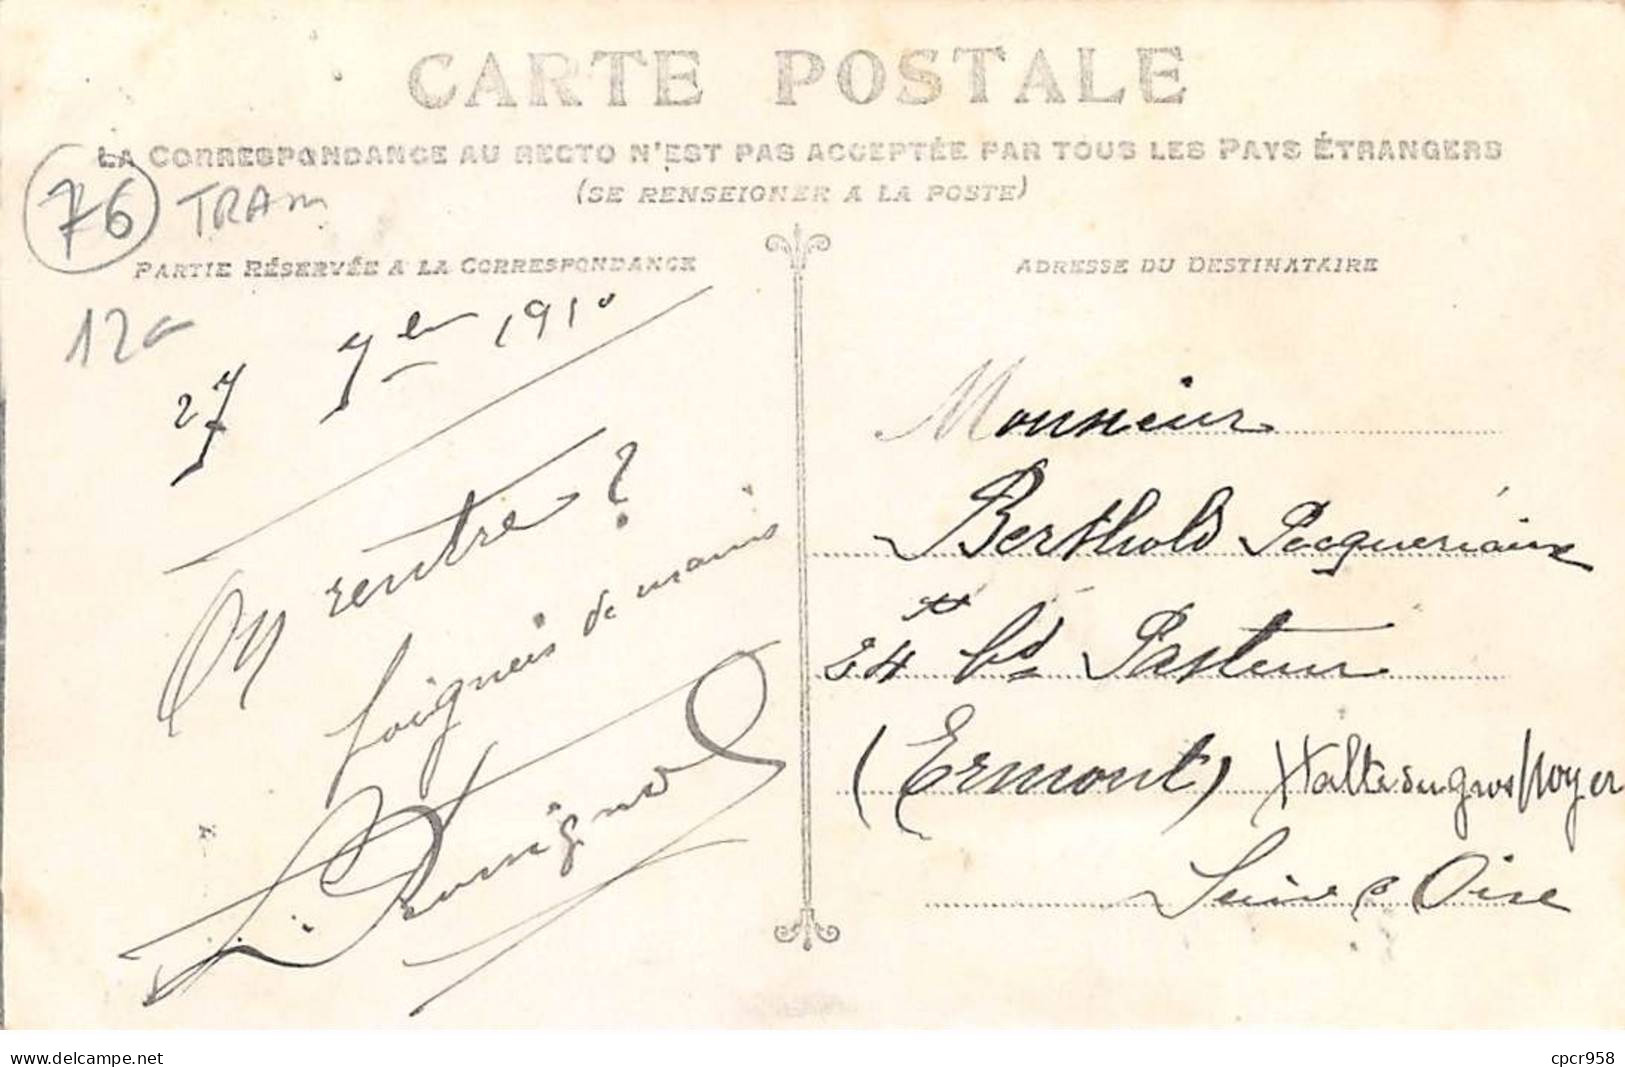 CARTE POSTALE
LA CORRESPONDANCE AU RECTO N'EST PAS ACCEPTÉE PAR TOUS LES PAYS ÉTRANGERS
(SE RENSEIGNER A LA POSTE)
76 TRAM
PARTIE RÉSERVÉE A LA CORRESPONDANCE
12€
27 7bre 1910
On rentre ?
poignées de mains
L. Rossignol
ADRESSE DU DESTINATAIRE
Monsieur
Berthold
24 bd Pasteur
(Ermont) Halte du gros Noyer
Seine & Oise
www.delcampe.net
cpcr958